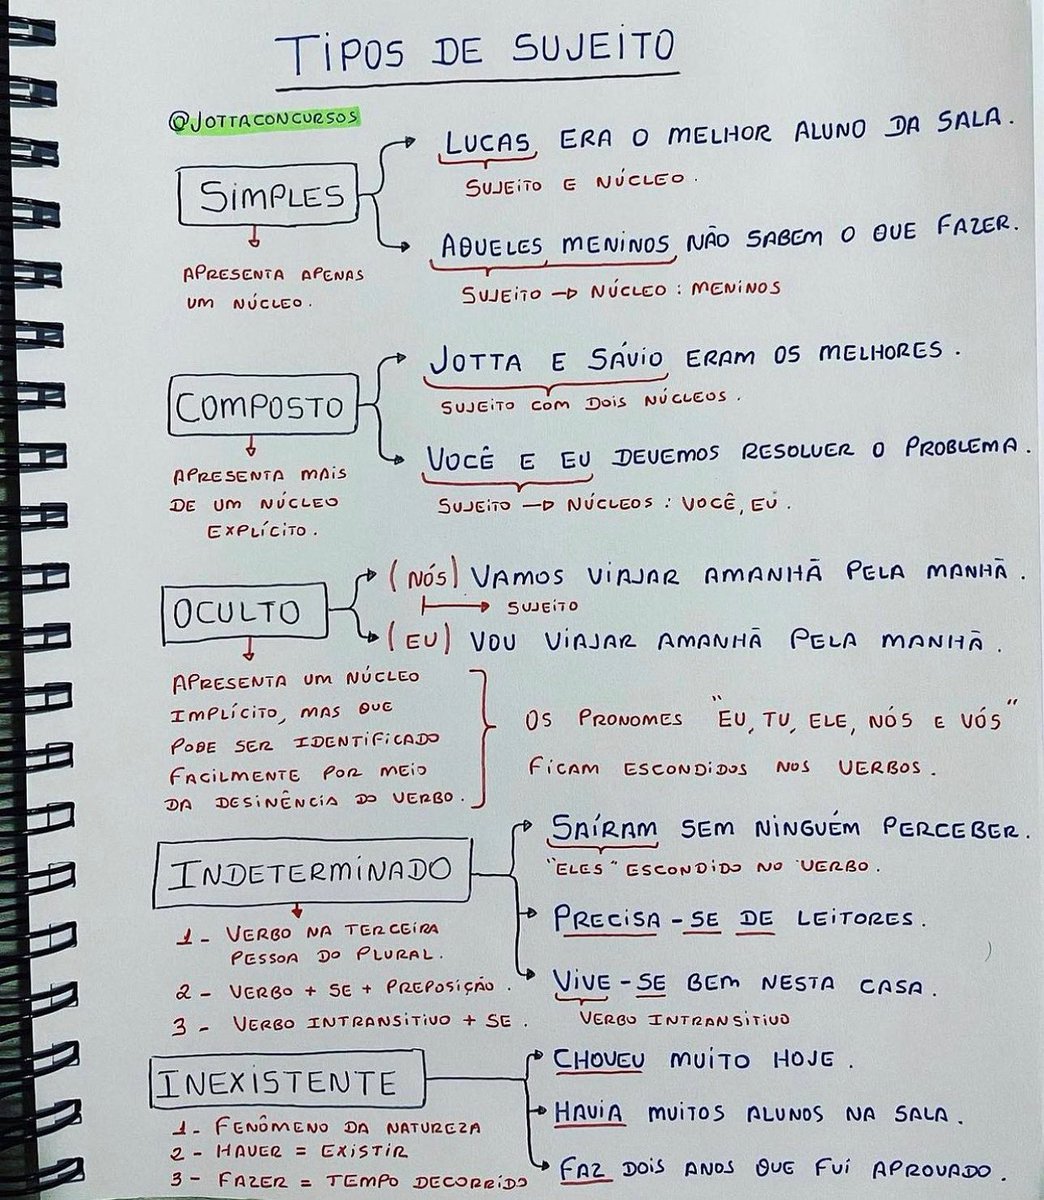 TIPOS DE SUJEITO
@JOTTACONCURSOS
SIMPLES
APRESENTA APENAS
UM NÚCLEO.
LUCAS ERA O MELHOR ALUNO DA SALA.
SUJEITO E NÚCLEO.
AQUELES MENINOS NÃO SABEM O QUE FAZER.
SUJEITO → NÚCLEO: MENINOS
COMPOSTO
APRESENTA MAIS
DE UM NÚCLEO
EXPLÍCITO.
JOTTA E SÁVIO ERAM OS MELHORES.
SUJEITO COM DOIS NÚCLEOS.
VOCÊ E EU DEVEMOS RESOLVER O PROBLEMA.
SUJEITO → NÚCLEOS: VOCÊ, EU.
OCULTO
(NÓS) VAMOS VIAJAR AMANHÃ PELA MANHÃ.
SUJEITO
(EU) VOU VIAJAR AMANHÃ PELA MANHÃ.
APRESENTA UM NÚCLEO
IMPLÍCITO, MAS QUE
PODE SER IDENTIFICADO
FACILMENTE POR MEIO
DA DESINÊNCIA DO VERBO.
OS PRONOMES "EU, TU, ELE, NÓS E VÓS"
FICAM ESCONDIDOS NOS VERBOS.
INDETERMINADO
1- VERBO NA TERCEIRA
PESSOA DO PLURAL.
2- VERBO + SE + PREPOSIÇÃO.
3- VERBO INTRANSITIVO + SE.
SAÍRAM SEM NINGUÉM PERCEBER.
"ELES" ESCONDIDO NO VERBO.
PRECISA-SE DE LEITORES.
VIVE-SE BEM NESTA CASA.
VERBO INTRANSITIVO
INEXISTENTE
1- FENÔMENO DA NATUREZA
2- HAVER = EXISTIR
3- FAZER = TEMPO DECORRIDO
CHOVEU MUITO HOJE.
HAVIA MUITOS ALUNOS NA SALA.
FAZ DOIS ANOS QUE FUI APROVADO.